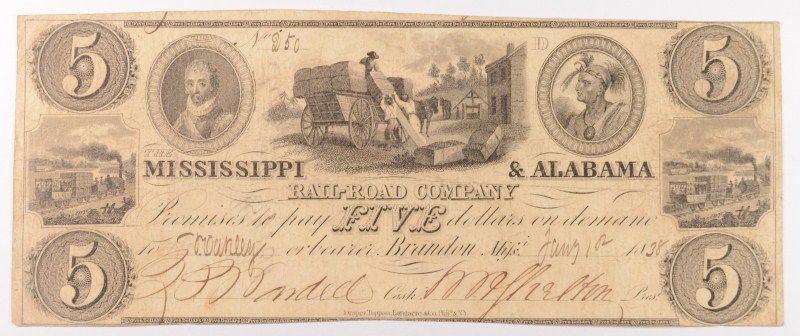 5 No 250 D 5
MISSISSIPPI & ALABAMA
RAIL-ROAD COMPANY
Promises to pay FIVE dollars on demand
to or bearer. Brandon Mips. Jany 1st 1838
5 Cashr. Prest. 5
Draper, Toppan, Longacre & Co. Phila. & N.Y.